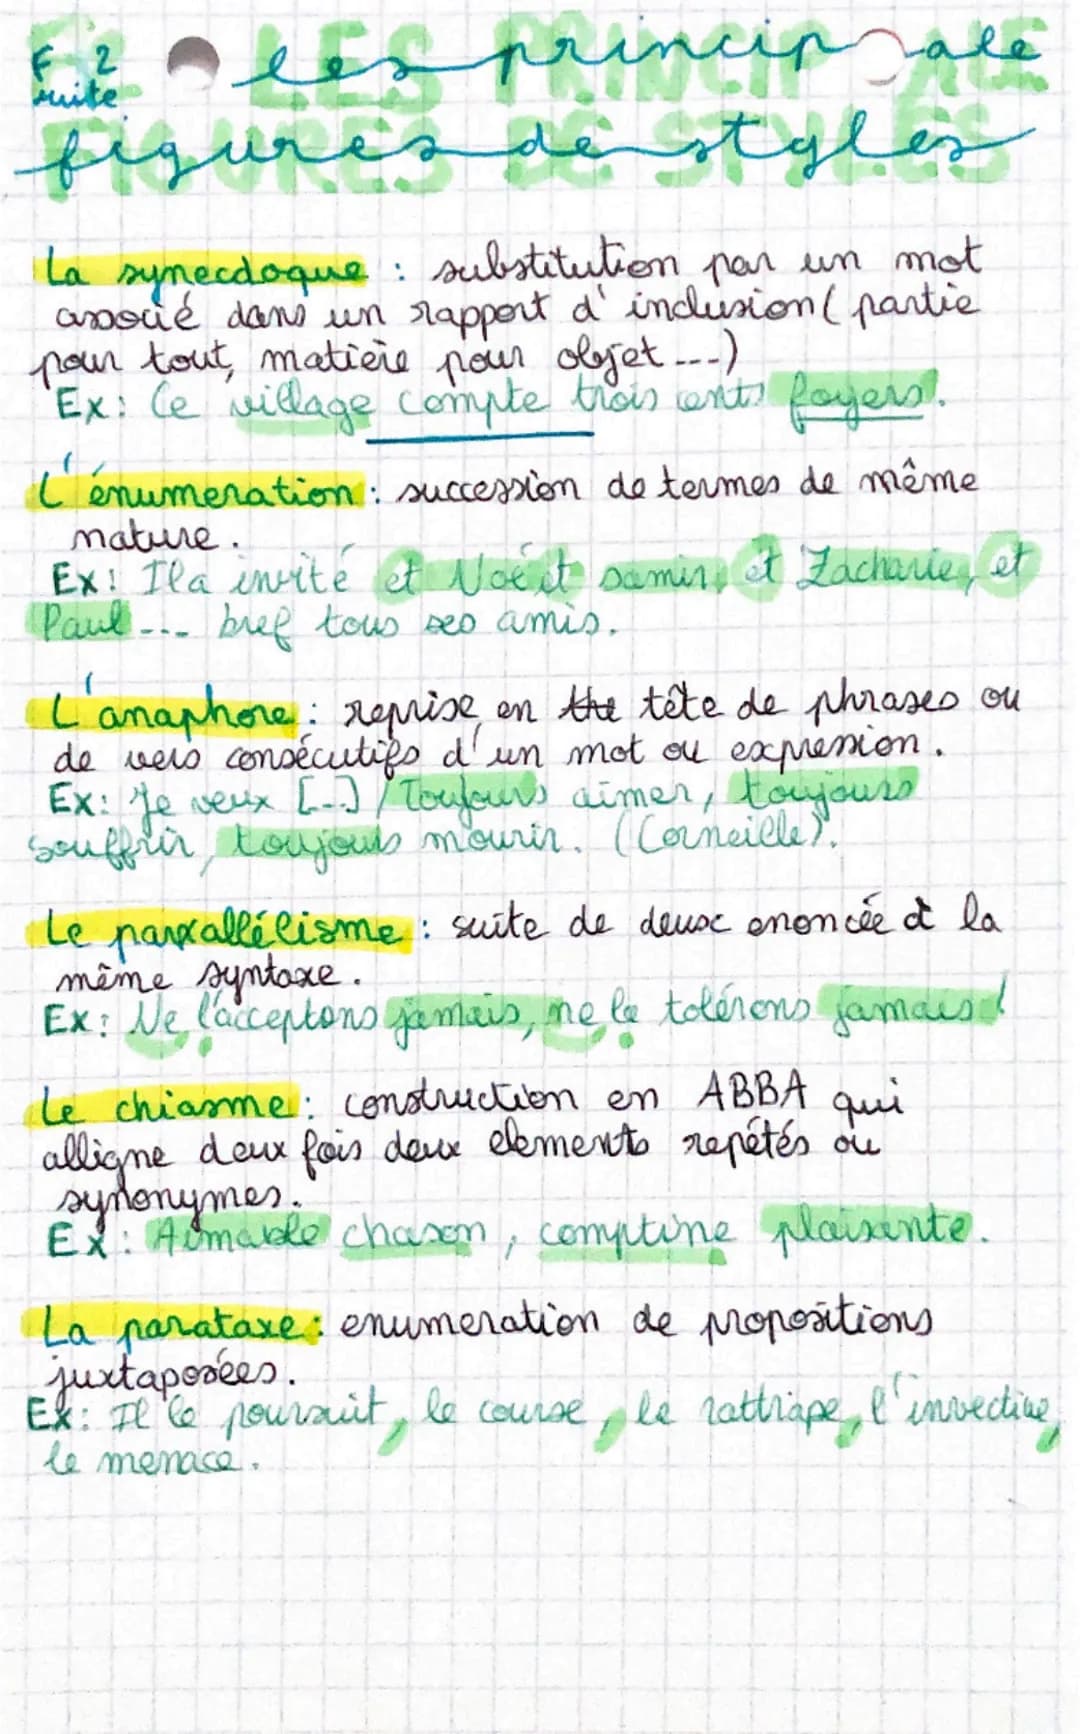 F 2 les principale
suite
figures de styles
La synecdoque : substitution par un mot
associé dans un rapport d'inclusion ( partie
pour tout, matière pour objet ...)
Ex: Ce village compte trois cents foyers.
L'énumeration : succession de termes de même
nature.
Ex: Il a invité et Noé et samir, et Zacharie, et
Paul ... bref tous ses amis.
L'anaphore : reprise en the tête de phrases ou
de vers consécutifs d'un mot ou expression.
Ex: Je veux [...] / Toujours aimer, toujours
souffrir, toujours mourir. (Corneille).
Le parallélisme : suite de deux enoncée à la
même syntaxe.
Ex: Ne l'acceptons jamais, ne le tolérons jamais !
Le chiasme : construction en ABBA qui
alligne deux fois deux elements repétés ou
synonymes.
Ex: Aimable chason, comptine plaisante.
La parataxe : enumeration de propositions
juxtaposées.
Ex: Il le poursuit, le course, le rattrape, l'invective,
le menace.